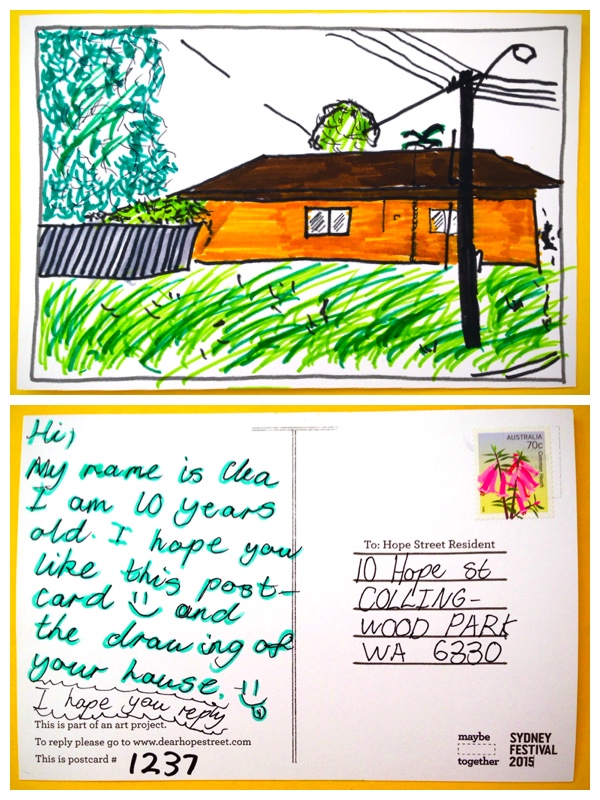 Hi,
My name is Clea
I am 10 years
old. I hope you
like this post-
card and
the drawing of
your house.
I hope you reply
This is part of an art project.
To reply please go to www.dearhopestreet.com
This is postcard # 1237
AUSTRALIA
70c
Common Heath
To: Hope Street Resident
10 Hope st
COLLING-
WOOD PARK
WA 6330
maybe
together
SYDNEY
FESTIVAL
2015